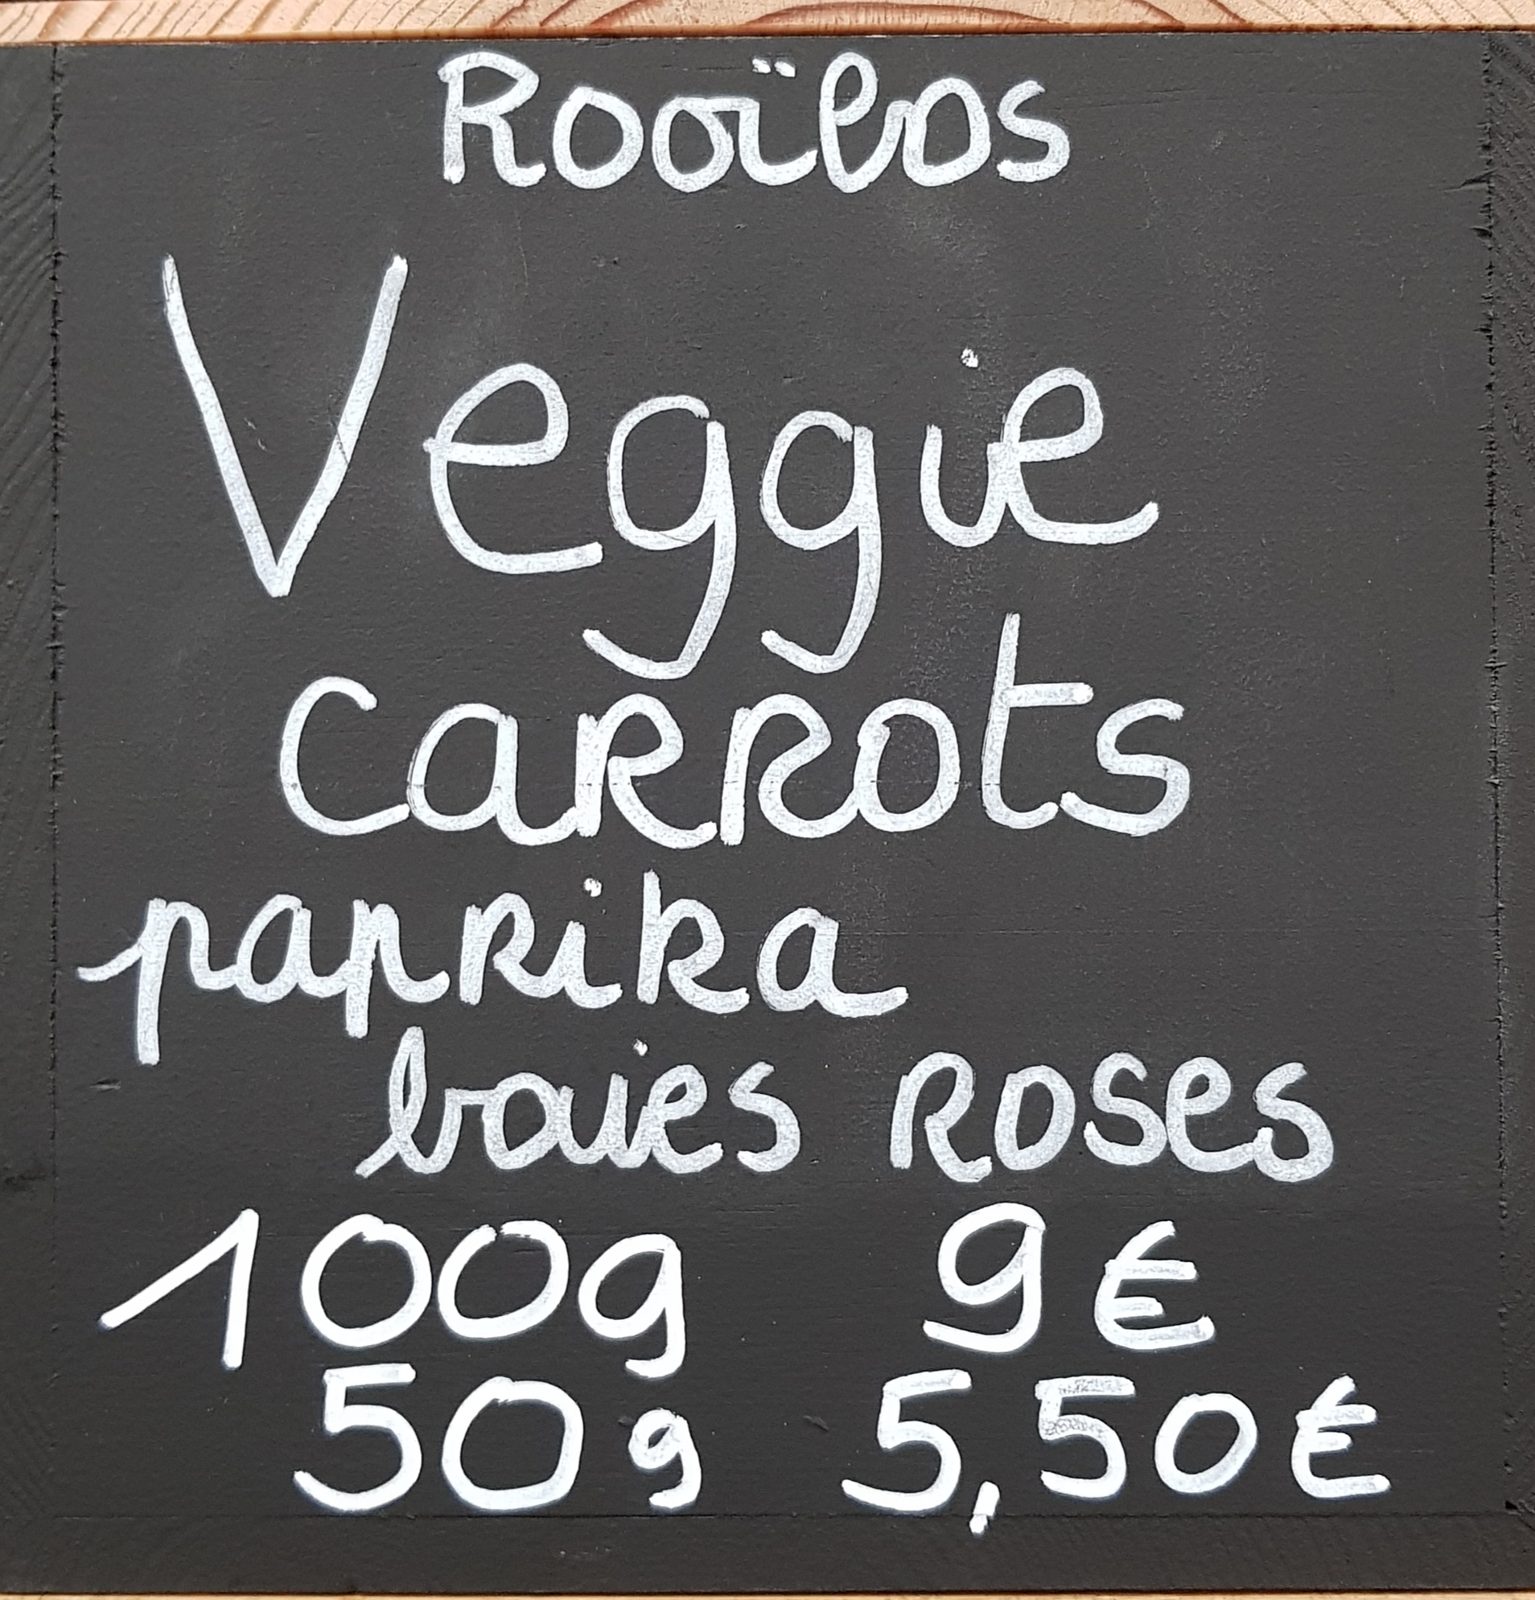 Rooïbos
Veggie
carrots
paprika
baies roses
100g 9€
50g 5,50€